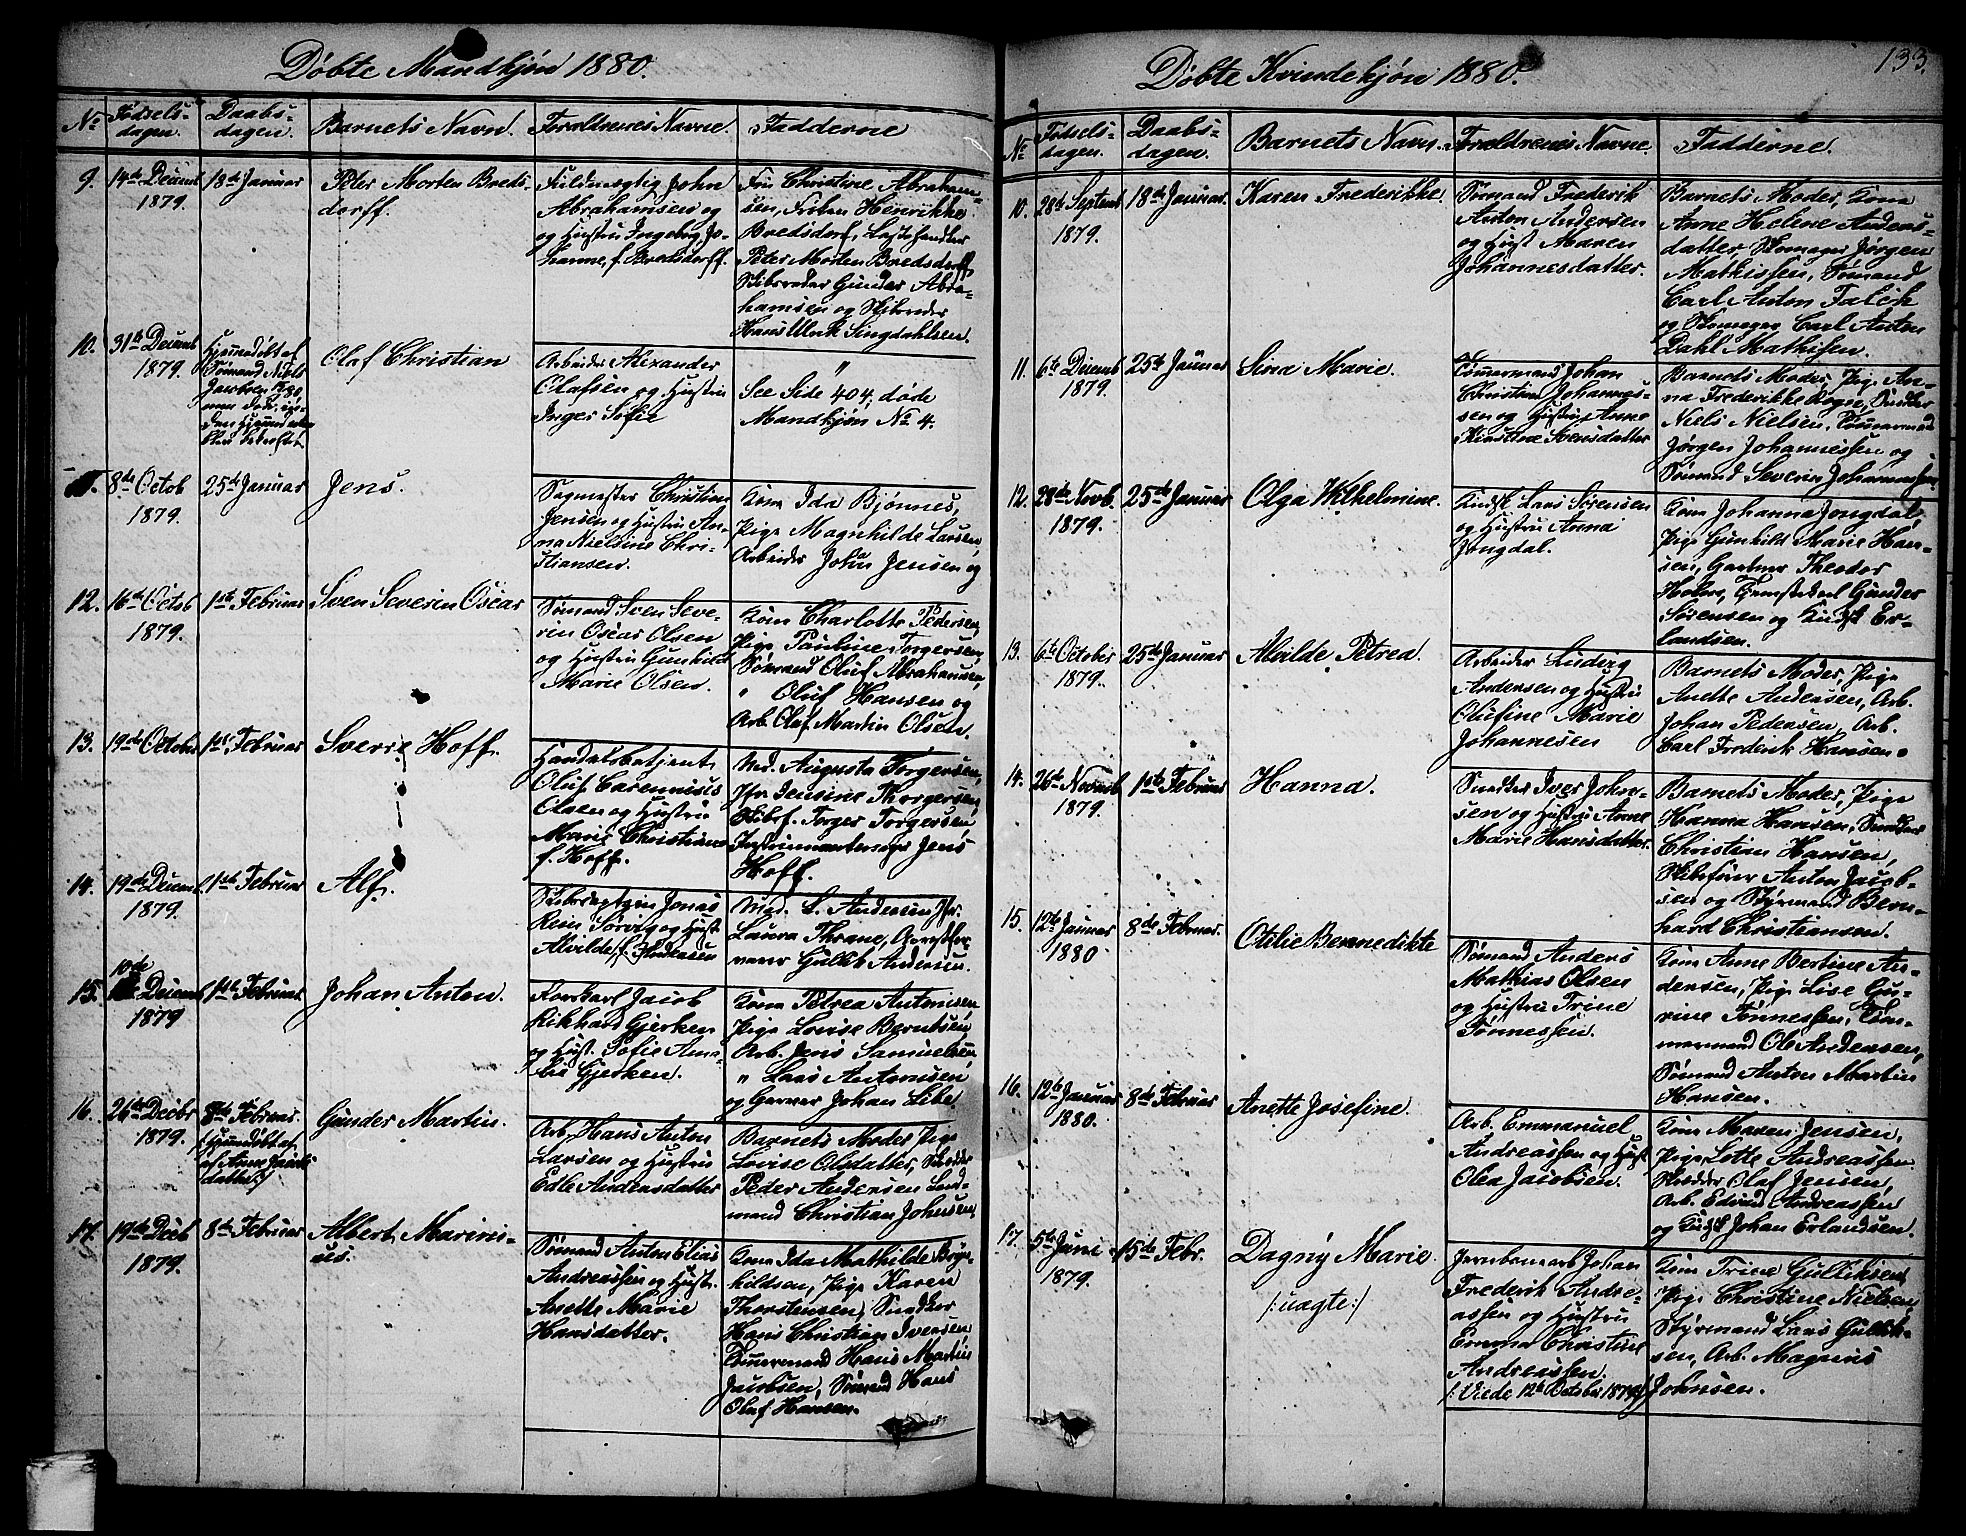 Døbte Mandkjøn 1880.
No
Fødsels-
dagen.
Daabs-
dagen.
Barnets Navn.
Forældrenes Navne.
Fadderne
9.
14de Decemb
1879.
18de Januar
Peter Morten Breds-
dorff.
Fuldmægtig John
Abrahamsen og
og Hustru Ingeborg Jo-
hanne, f. Bredsdorff.
Fru Christine Abraham-
sen, Frøken Henrikke
Bredsdorf, Lasthandler
Peter Morten Bredsdorff,
Skibsreder Gunder Abra-
hamsen og Skibsreder
Hans Ulrik Singdahlsen.
10.
31te Decemb
1879.
Hjemmedøbt af
Sømand Niels
Jacobsen
Olaf Christian
Arbeider Alexander
Olafsen og Hustru
Inger Sofie
"
See Side 404, døde
Mandkjøn No 4.
11.
8de Octob
1879.
25de Januar
Jens.
Sagmester Christian
Jensen og Hustru An-
na Nielsine Chri-
stiansen.
Kone Ida Bjønnes,
Pige Magnhilde Larsen,
Arbeider John Jensen og
12.
16de Octob
1879.
1ste Februar
Sven Severin Oscar
Sømand Sven Seve-
rin Oscar Olsen
og Hustru Gunhild
Marie Olsen.
Kone Charlotte Pedersen,
Pige Pauline Torgersen,
Sømand Oluf Abrahamsen,
" Oluf Hansen og
Arb. Olaf Martin Olsen.
13.
19de October
1ste Februar
Sverre Hoff.
Handelsbetjent
Oluf Carennius
Olsen og Hustru
Marie Christiane
f. Hoff.
Mad. Augusta Torgersen,
Jfr. Jensine Thorgersen,
Skibsf. Torger Torgersen,
Instrumentmager Jens
Hoff.
14.
19de Decemb.
1879.
1ste Februar
Alf.
Skibscaptein Jonas
Rein Sørvig og Hust.
Alvilde, f.
Mad. L. Andersen Jfr.
Laura Thrane,
Gullik Andersen.
15.
10de
Decemb
1879
1ste Februar
Johan Anton.
Korskarl Jacob
Rikhard Gjerken
og Hust. Sofie Ama-
lie Gjerken.
Kone Petrea Antonisen,
Pige Lovise Berntsen
Arb. Jens Samuelsen,
" Lars Antonisen
og Garver Johan Libe.
16.
26de Decbr
1879.
8de Februar.
Hjemmedøbt af
af Anne Jacobs
datter
Gunder Martin.
Arb. Hans Anton
Larsen og Hustru
Edle Andersdatter
Barnets Moder, Pige
Lovise Olsdatter, Skræder
Peder Andersen
mand Christian Johnsen,
17.
19de Decb
1879.
8de Februar
Albert Marini-
us.
Sømand Anton Elias
Andreassen og Hust.
Anette Marie
Hansdatter.
Kone Ida Mathilde Bryn-
hildsen, Pige Karen
Thorstensen, Snedker
Hans Christian Iversen
Tømmermand Hans Martin
Jacobsen, Sømand Hans
Oluf Hansen.
133.
Døbte Kvindekjøn 1880.
No
Fødsels-
dagen.
Daabs-
dagen.
Barnets Navn.
Forældrenes Navne.
Fadderne.
10.
28de Septemb
1879.
18de Januar.
Karen Frederikke.
Sømand Frederik
Anton Andersen
og Hust Maren
Johannesdatter.
Barnets Moder, Kone
Anne Helene Anders-
datter, Skomager Jørgen
Mathissen, Sømand
Carl Anton Falck
og Skomager Carl Anton
Dahl Mathisen.
11.
6te Decemb
1879.
25de Januar
Sina Marie.
Tømmermand Johan
Christian Johannes-
sen og Hustru Anne
Kirstine Svensdatter
Barnets Moder, Pige An-
na Frederikke Bogen, Snedker
Niels Nielsen, Tømmermand
Jørgen Johannessen og
Sømand Severin Johannessen
12.
28de Novb.
1879.
25de Januar
Olga Wilhelmine.
Kudsk Lars Sørensen
og Hustru Anna
Jongdal.
Kone Johanna Jongdal,
Pige Gunhild Marie Han-
sen, Gartner Theodor
Holm, Gunder
Sørensen og Kudsk Er-
landsen.
13.
6te October
1879.
25de Januar
Alvilde Petrea.
Arbeider Ludvig
Andersen og Hustru
Olufine Marie
Johannesen
Barnets Moder, Pige
Anette Andersen, Arb.
Johan Pedersen, Arb.
Carl Frederik Hansen.
14.
26de Novemb
1879.
1ste Februar
Hanna.
Snedker Iver John-
sen og Hustru Anne
Marie Hansdatter.
Barnets Moder, Pige
Hanna Hansen, Snedker
Christian Hansen,
Skibsfører Anton Jacob-
sen og Styrmand Bern-
hard Christiansen.
15.
12te Januar
1880
8de Februar.
Otilie Bennedikte
Sømand Anders
Mathias Olsen
og Hustru Trine
Tønnessen.
Kone Anne Bertine An-
dersen, Pige Lise Gu-
rine Tønnessen, Tøm-
mermand Ole Andersen,
Sømand Anton Martin
Hansen.
16.
12te Januar
1880.
8de Februar
Anette Josefine.
Arb. Emmanuel
Andreassen og Hust
Olea Jacobsen.
Kone Maren Jensen,
Pige Lotte Andreassen
Skræder Olaf Jensen,
Arb. Edvard Andreassen
og Kudsk Johan Erlandsen.
17.
5te Juni
1879.
15de Febr.
Dagny Marie
/:uægte:/
Jernbanearb Johan
Frederik Andre-
assen og Hustru
Emma Christine
Andreassen.
/: Viede 12te October 1879:/
Kone Trine Gulliksen,
Pige Christine Nielsen
Styrmand Lars Gullik-
sen, Arb. Magnus
Johnsen.